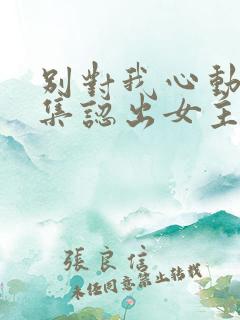 別對我心動
集認出女主
張良信
未经同意禁止转载